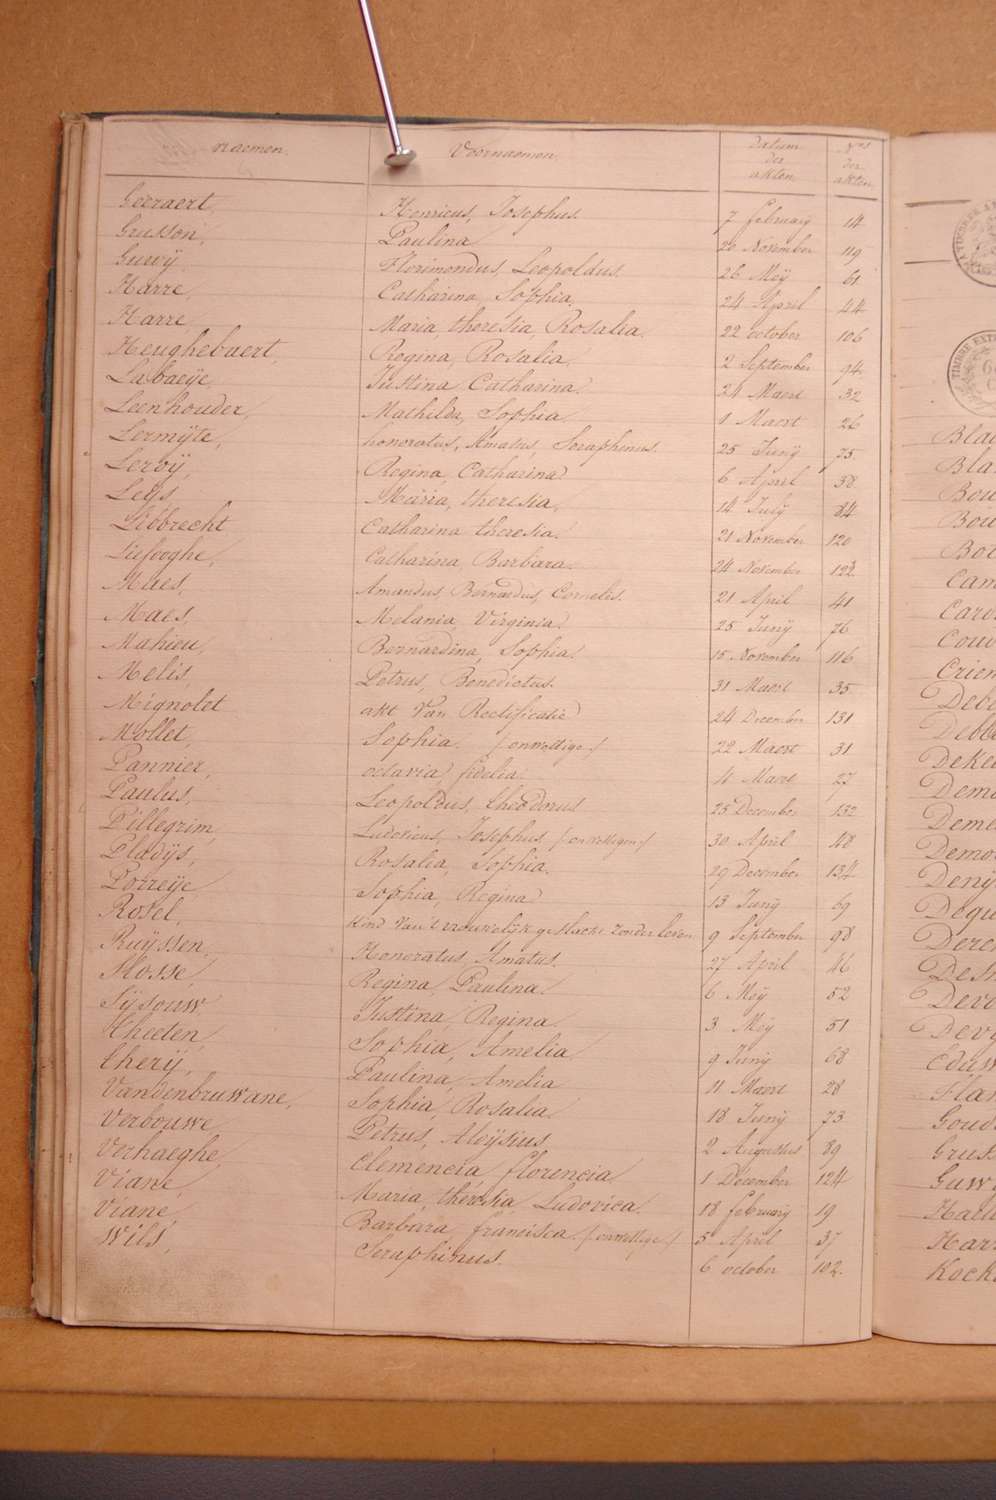 Naemen. Voornaemen. Datum der akten N.os der akten
Geeraert, Henricus, Josephus. 7 february 14
Grusson, Paulina 20 November 119
Guwÿ Florimondus, Leopoldus. 26 Meÿ 61
Harre, Catharina, Sophia. 24 April 44
Harre, Maria, theresia, Rosalia. 22 october 106
Heughebaert, Regina, Rosalia. 2 September 94
Labaeÿe, Justina Catharina. 24 Maert 32
Leenhouder, Mathilda, Sophia. 1 Maert 26
Lermÿte, honoratus, Amatus, Seraphinus. 25 Junÿ 75
Leroÿ, Regina, Catharina 6 April 38
Leÿs Maria, theresia, 14 Julÿ 84
Libbrecht Catharina theresia. 21 November 120
Liefooghe, Catharina, Barbara. 24 November 122
Maes, Amandus, Bernardus, Cornelis. 21 April 41
Maes, Melania, Virginia. 25 Junÿ 76
Mahieu, Bernardina, Sophia. 15 November 116
Melis, Petrus, Benedictus. 31 Maert 35
Mignolet akt Van Rectificatie 24 December 131
Mollet, Sophia. (onwettige) 22 Maert 31
Pannier, octavia, fidelia. 11 Maert 27
Paulus, Leopoldus, theodorus 25 December 132
Pillegrim, Ludovicus, Josephus, (onwettigen) 30 April 48
Pladÿs, Rosalia, Sophia. 29 December 134
Porreÿe, Sophia, Regina 13 Junÿ 69
Rosel, Kind Van't vrouwelÿk geslacht zonder leven 9 September 98
Ruÿssen, Honoratus, Amatus. 27 April 46
Slosse, Regina, Paulina. 6 Meÿ 52
Sÿsouw Justina, Regina. 3 Meÿ 51
Theeten, Sophia, Amelia 9 Junÿ 68
Therÿ, Paulina, Amelia 11 Maert 28
Vandenbruwane, Sophia, Rosalia 18 Junÿ 73
Verbouwe, Petrus, Aloÿsius 2 Augustus 89
Verhaeghe, Clemencia, florencia 1 December 124
Viane, Maria, thérésia, Ludovica. 18 february 19
Viane, Barbara, francisca. (onwettige) 5 April 37
Wils, Seraphinus. 6 october 102.